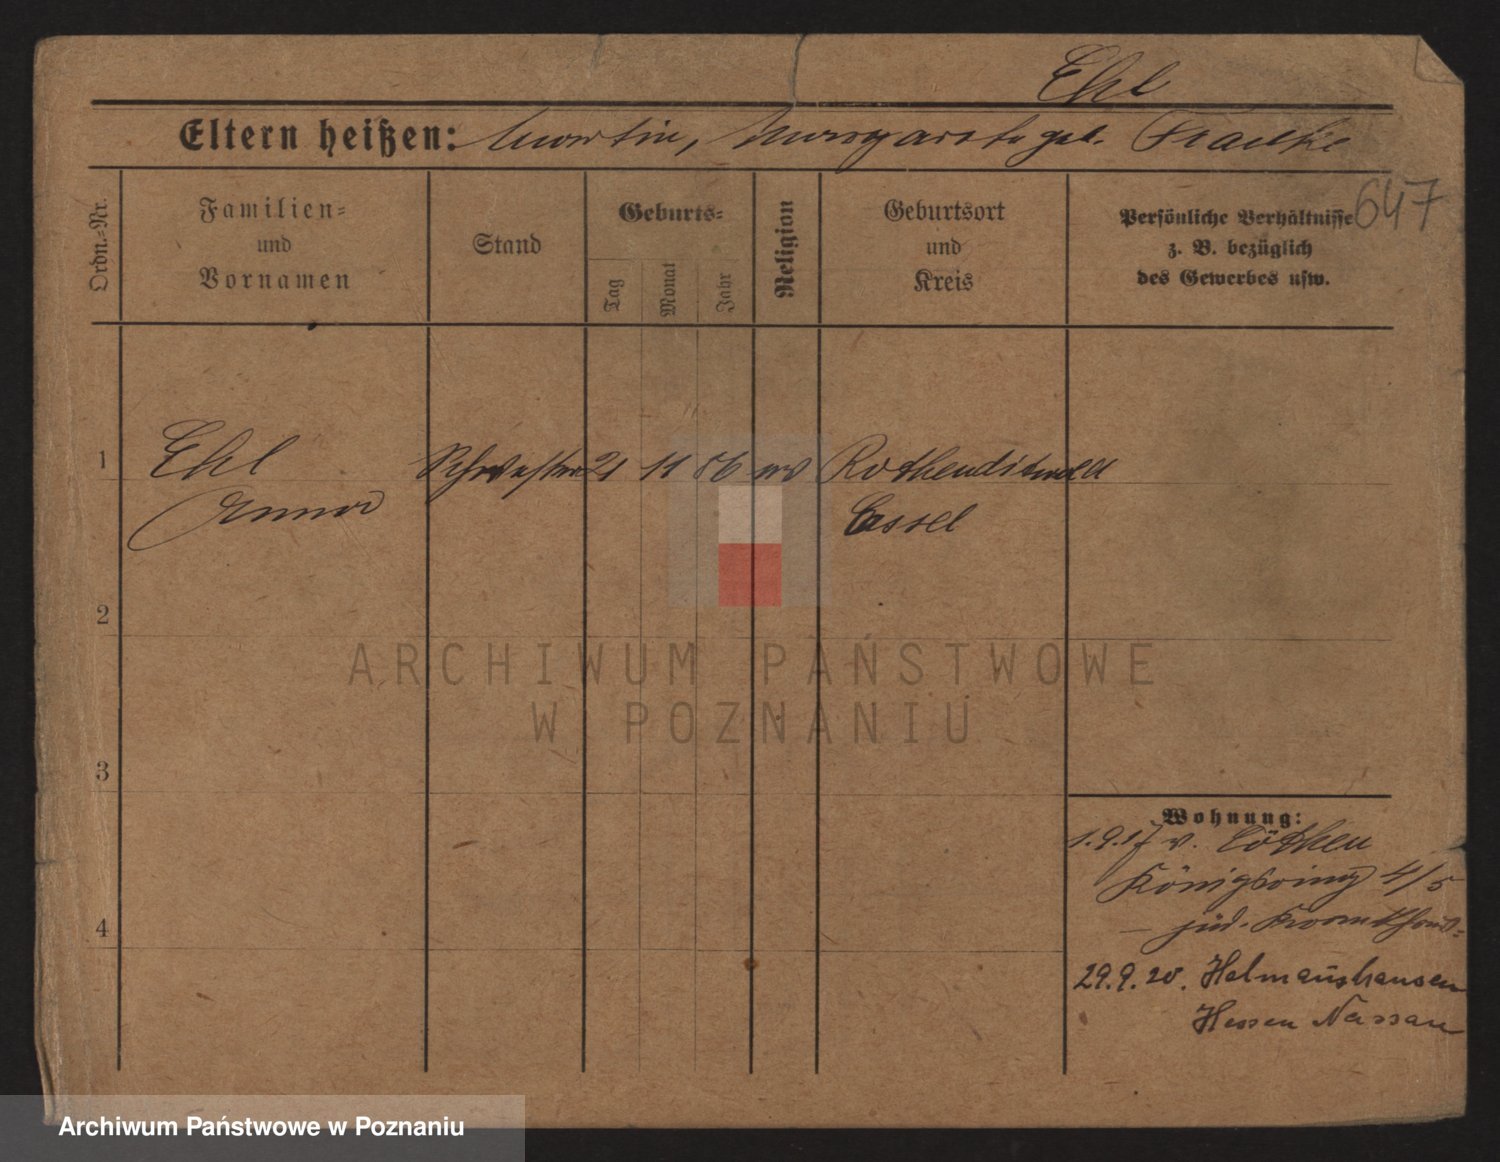 Ehl
Eltern heißen: Martin, Margarete geb. Francke
647
Ordn.-Nr.
Familien-
und
Vornamen
Stand
Geburts-
Tag
Monat
Jahr
Religion
Geburtsort
und
Kreis
Persönliche Verhältnisse
z. B. bezüglich
des Gewerbes usw.
1
Ehl Schwester 21 11 86 ev
Anna Cassel
2
3
4
Wohnung:
1.9.17 v. Cöthen
Königsring 4/5
jüd. Krankhaus
29.9.20. Helmarshausen
Hessen Nassau
ARCHIWUM PAŃSTWOWE
W POZNANIU
Archiwum Państwowe w Poznaniu